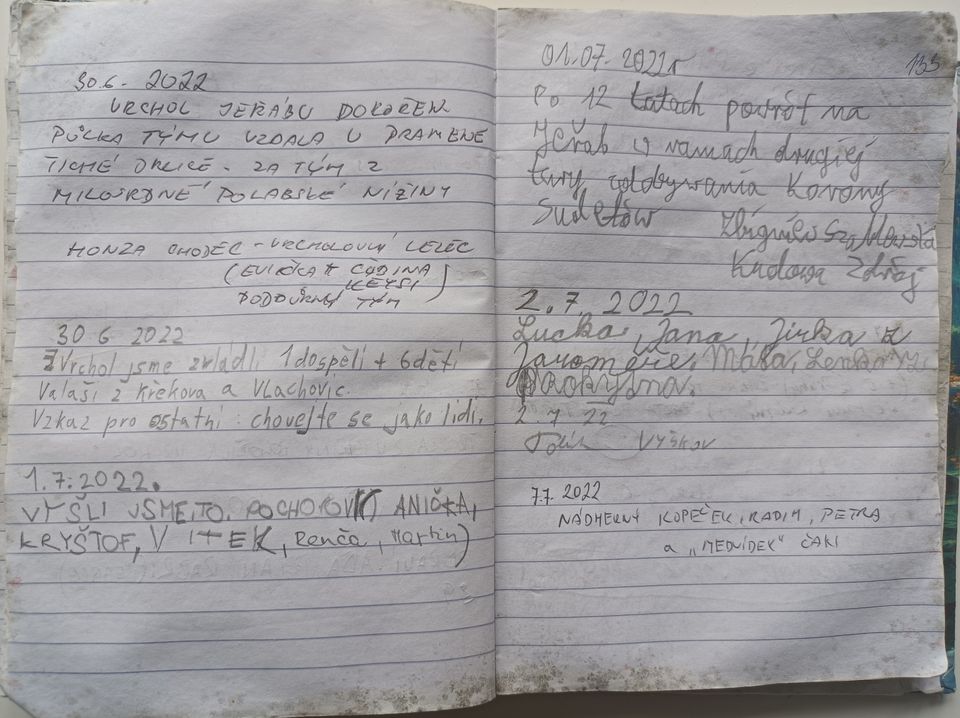 30.6. 2022
VRCHOL JEŘÁBU POKOŘEN
PŮLKA TÝMU VZDALA U PRAMENE
TICHÉ ORLICE - ZA TÝM Z
MILOSRDNÉ POLABSKÉ NÍŽINY
HONZA CHODEC - VRCHOLOVÝ LEZEC
TÝM
30 6 2022
Vrchol jsme zvládli 1 dospělí + 6 dětí
Valaši z Křekova a Vlachovic.
Vzkaz pro ostatní: chovejte se jako lidi.
1.7.2022.
VYŠLI JSME TO. ANIČKA,
KRYŠTOF, VITEK, Renča, Martin)
01.07.2022r
133
Po 12 latach powrót na
Jeřab w ramach drugiej
tury zdobywania Korony
Sudetów Zbigniew
Kudowa Zdrój
2.7 2022
Lucka, Jana, Jirka z
Jaroměře, Máta, Lenka z
2 7 22
VYŠKOV
7.7. 2022
NÁDHERNÝ KOPEČEK, RADIM, PETRA
a „MEDVÍDEK" ČAKI